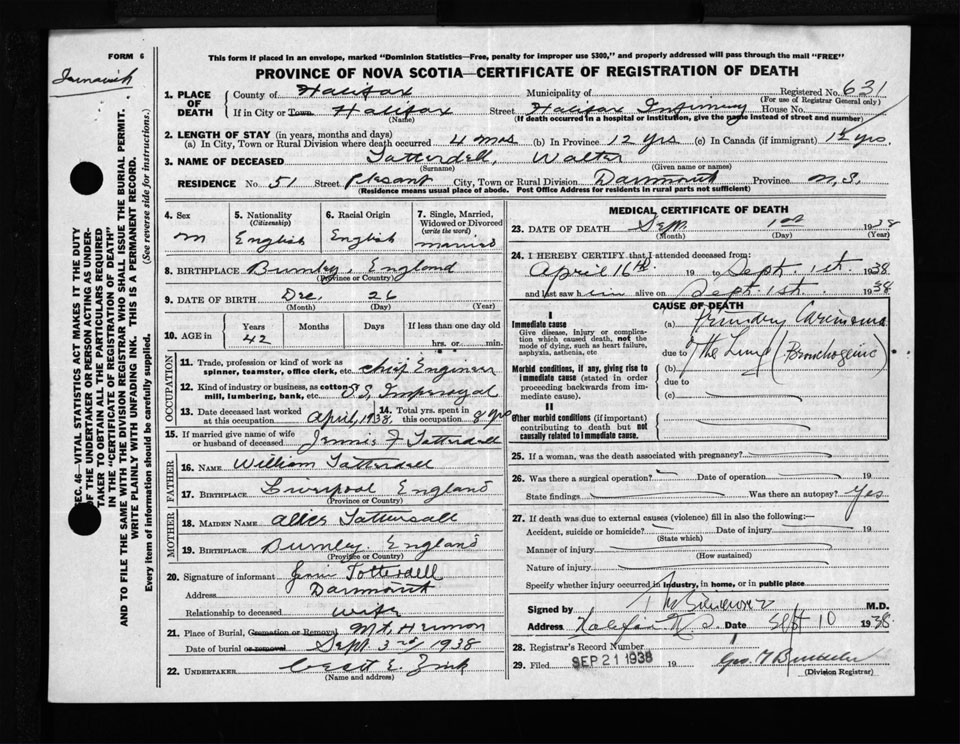 FORM 6
This form if placed in an envelope, marked "Dominion Statistics—Free, penalty for improper use $300," and properly addressed will pass through the mail "FREE"
PROVINCE OF NOVA SCOTIA—CERTIFICATE OF REGISTRATION OF DEATH
SEC. 46—VITAL STATISTICS ACT MAKES IT THE DUTY
OF THE UNDERTAKER OR PERSON ACTING AS UNDER-
TAKER TO OBTAIN ALL THE PARTICULARS REQUIRED
IN THE "CERTIFICATE OF REGISTRATION OF DEATH"
AND TO FILE THE SAME WITH THE DIVISION REGISTRAR WHO SHALL ISSUE THE BURIAL PERMIT.
WRITE PLAINLY WITH UNFADING INK. THIS IS A PERMANENT RECORD.
Every item of information should be carefully supplied. (See reverse side for instructions.)
1. PLACE OF DEATH County of Halifax Municipality of Registered No. 631
(For use of Registrar General only)
If in City or Town. Halifax Street Halifax Infirmary House No.
(Name) (If death occurred in a hospital or institution, give the name instead of street and number)
2. LENGTH OF STAY (in years, months and days)
(a) In City, Town or Rural Division where death occurred 4 mos (b) In Province 12 yrs (c) In Canada (if immigrant) yrs.
3. NAME OF DECEASED Tatterdell, Walter
(Surname) (Given name or names)
RESIDENCE No. 51 Street Plesant City, Town or Rural Division Darmouth Province N.S.
(Residence means usual place of abode. Post Office Address for residents in rural parts not sufficient)
4. Sex M
5. Nationality (Citizenship) English
6. Racial Origin English
7. Single, Married, Widowed or Divorced (write the word) married
8. BIRTHPLACE Burnley, England
(Province or Country)
9. DATE OF BIRTH Dec. 26
(Month) (Day) (Year)
10. AGE in Years 42 Months Days If less than one day old
hrs. or min.
OCCUPATION
11. Trade, profession or kind of work as spinner, teamster, office clerk, etc. chief Engineer
12. Kind of industry or business, as cotton-mill, lumbering, bank, etc. S.S.
13. Date deceased last worked at this occupation April, 1938 14. Total yrs. spent in this occupation 8 yrs
15. If married give name of wife or husband of deceased F Tatterdell
FATHER
16. NAME William Tatterdell
17. BIRTHPLACE Liverpool England
(Province or Country)
MOTHER
18. MAIDEN NAME Alice Tattersall
19. BIRTHPLACE Burnley England
(Province or Country)
20. Signature of informant Totterdell
Address Darmouth
Relationship to deceased wife
21. Place of Burial, Cremation or Removal Mt. Hermon
Date of burial or removal Sept. 3rd, 1938
22. UNDERTAKER E. Zink
(Name and address)
MEDICAL CERTIFICATE OF DEATH
23. DATE OF DEATH Sept. 1st 1938
(Month) (Day) (Year)
24. I HEREBY CERTIFY that I attended deceased from:
April 16th 19 to Sept. 1st. 1938
and last saw him alive on Sept. 1st. 1938
CAUSE OF DEATH
I
Immediate cause
Give disease, injury or complication which caused death, not the mode of dying, such as heart failure, asphyxia, asthenia, etc
(a) Primary Carcinoma
due to The Lung (Bronchogenic)
Morbid conditions, if any, giving rise to immediate cause (stated in order proceeding backwards from immediate cause).
(b)
due to
(c)
II
Other morbid conditions (if important) contributing to death but not causally related to immediate cause.
25. If a woman, was the death associated with pregnancy?
26. Was there a surgical operation? Date of operation 19
State findings Was there an autopsy? Yes
27. If death was due to external causes (violence) fill in also the following:—
Accident, suicide or homicide? Date of injury 19
(State which)
Manner of injury
(How sustained)
Nature of injury
Specify whether injury occurred in industry, in home, or in public place
Signed by M.D.
Address Halifax N.S. Date Sept 10 1938
28. Registrar's Record Number
29. Filed SEP 21 1938 19 Geo.
(Division Registrar)